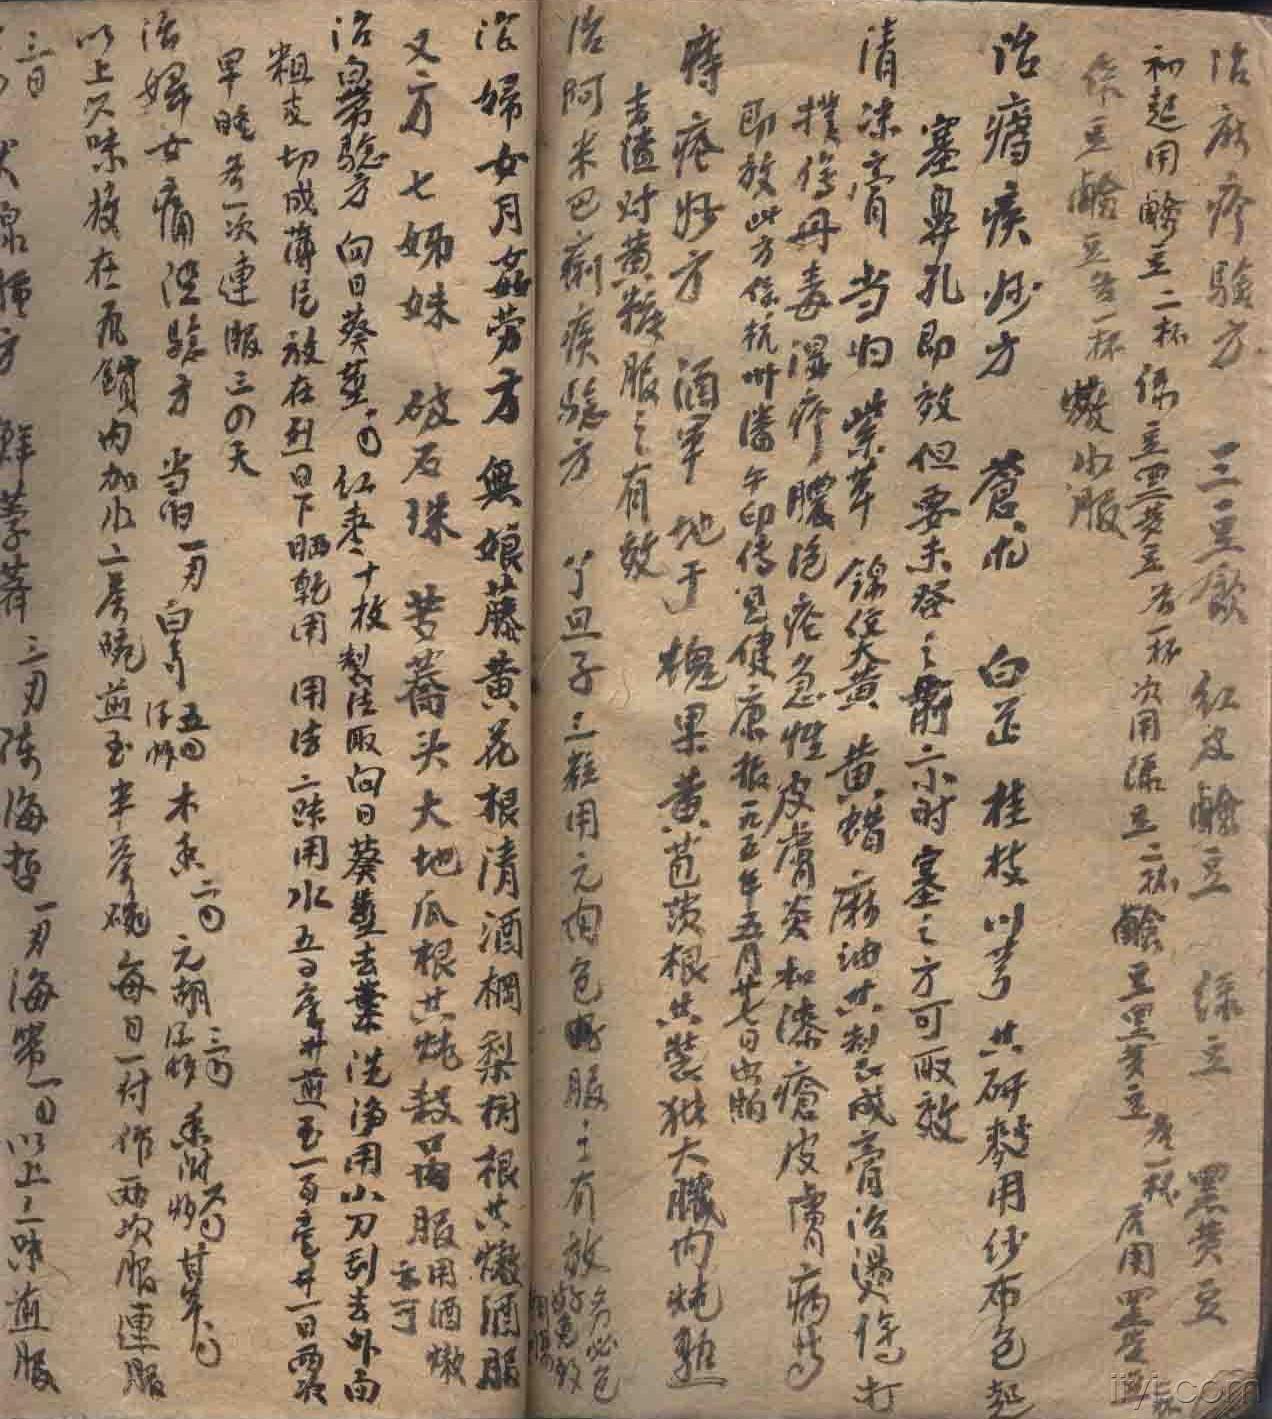 治麻疹驗方 三豆飲 紅皮 豆 綠豆 黑黃豆
初起用 豆二杯 綠豆黑黃豆各一杯 次用綠豆二杯 豆黑黃豆各一杯 后用黑黃豆 杯
綠豆 豆各一杯 燉水服
治瘧疾妙方 蒼朮 白芷 桂枝 川芎 共研 用紗布包起
塞鼻孔即效但要未發之前二小时塞之方可取效
清凉膏 当归 紫草 錦紋大黄 黄蜡 麻油共製成膏治燙傷打
撲傷丹毒湿疹膿疱疮急性皮膚炎和漆瘡皮膚病等
即放此方係杭州潘午印傳見健康报一九五 年五月廿七日出
痔疮妙方 酒軍 地于 槐果 黄 根共裝 大腸内炖
去渣对黄 服之有效
治阿米巴痢疾驗方 丫旦子三粒用元肉包 服之有效
治婦女月 劳方 無娘藤黄花根清酒 梨樹根共燉酒服
又方七姊妹 破石珠 苦 头大地瓜根共炖 服用酒燉亦可
治白帶驗方 向日葵莖 紅枣十枚製法取向日葵莖去葉洗淨用小刀刮去外面
粗皮切成薄片放在烈日下晒乾用 用法二味用水五百毫升煎至一百毫升一日两次
早晚各一次連服三四天
治婦女痛經驗方 当归一 白 五 木香二 元胡 三 香附炒 甘草
以上六味放在瓦罐内加水二 碗煎至半茶碗每日一付作两次服連服
三日
方 鮮荸荠三 陈海哲一 海 一 以上 味煎服